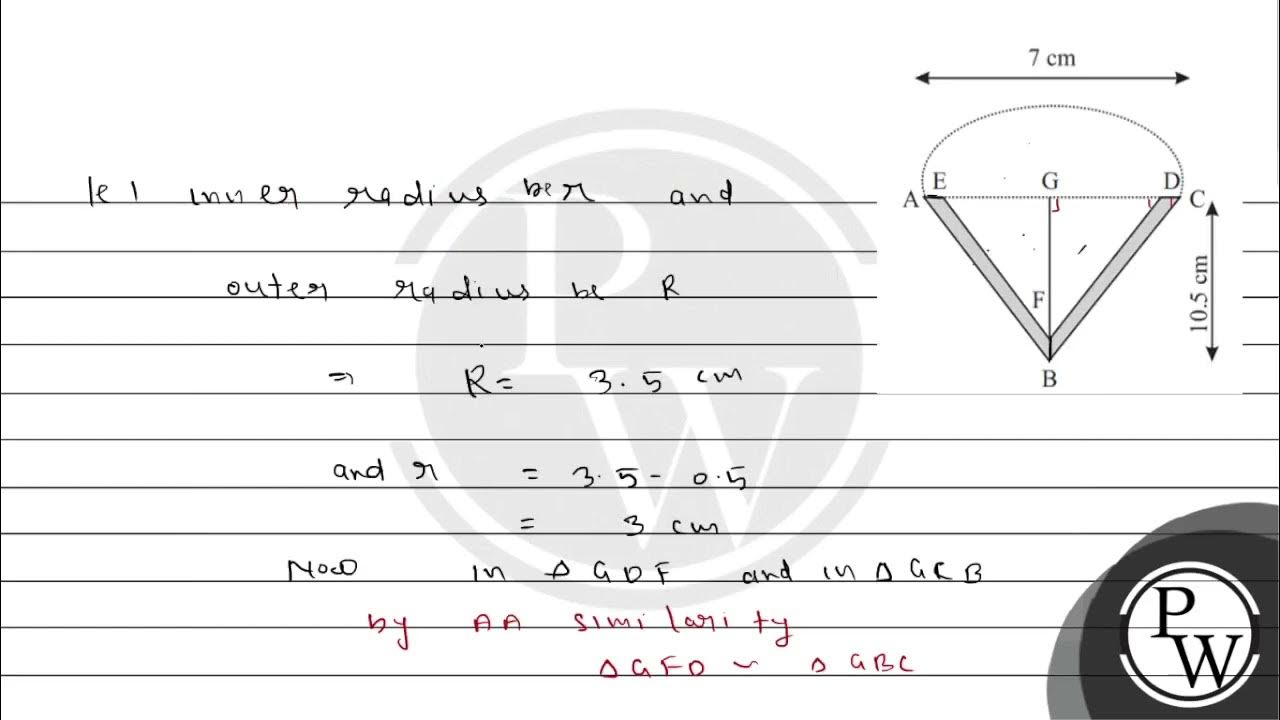 7 cm
A E G D C
F
B
10.5 cm
let inner radius be r and
outer radius be R
⇒ R = 3.5 cm
and r = 3.5 - 0.5
= 3 cm
Now in Δ GDF and in Δ GCB
by AA similarity
Δ GFD ~ Δ GBC
PW
PW